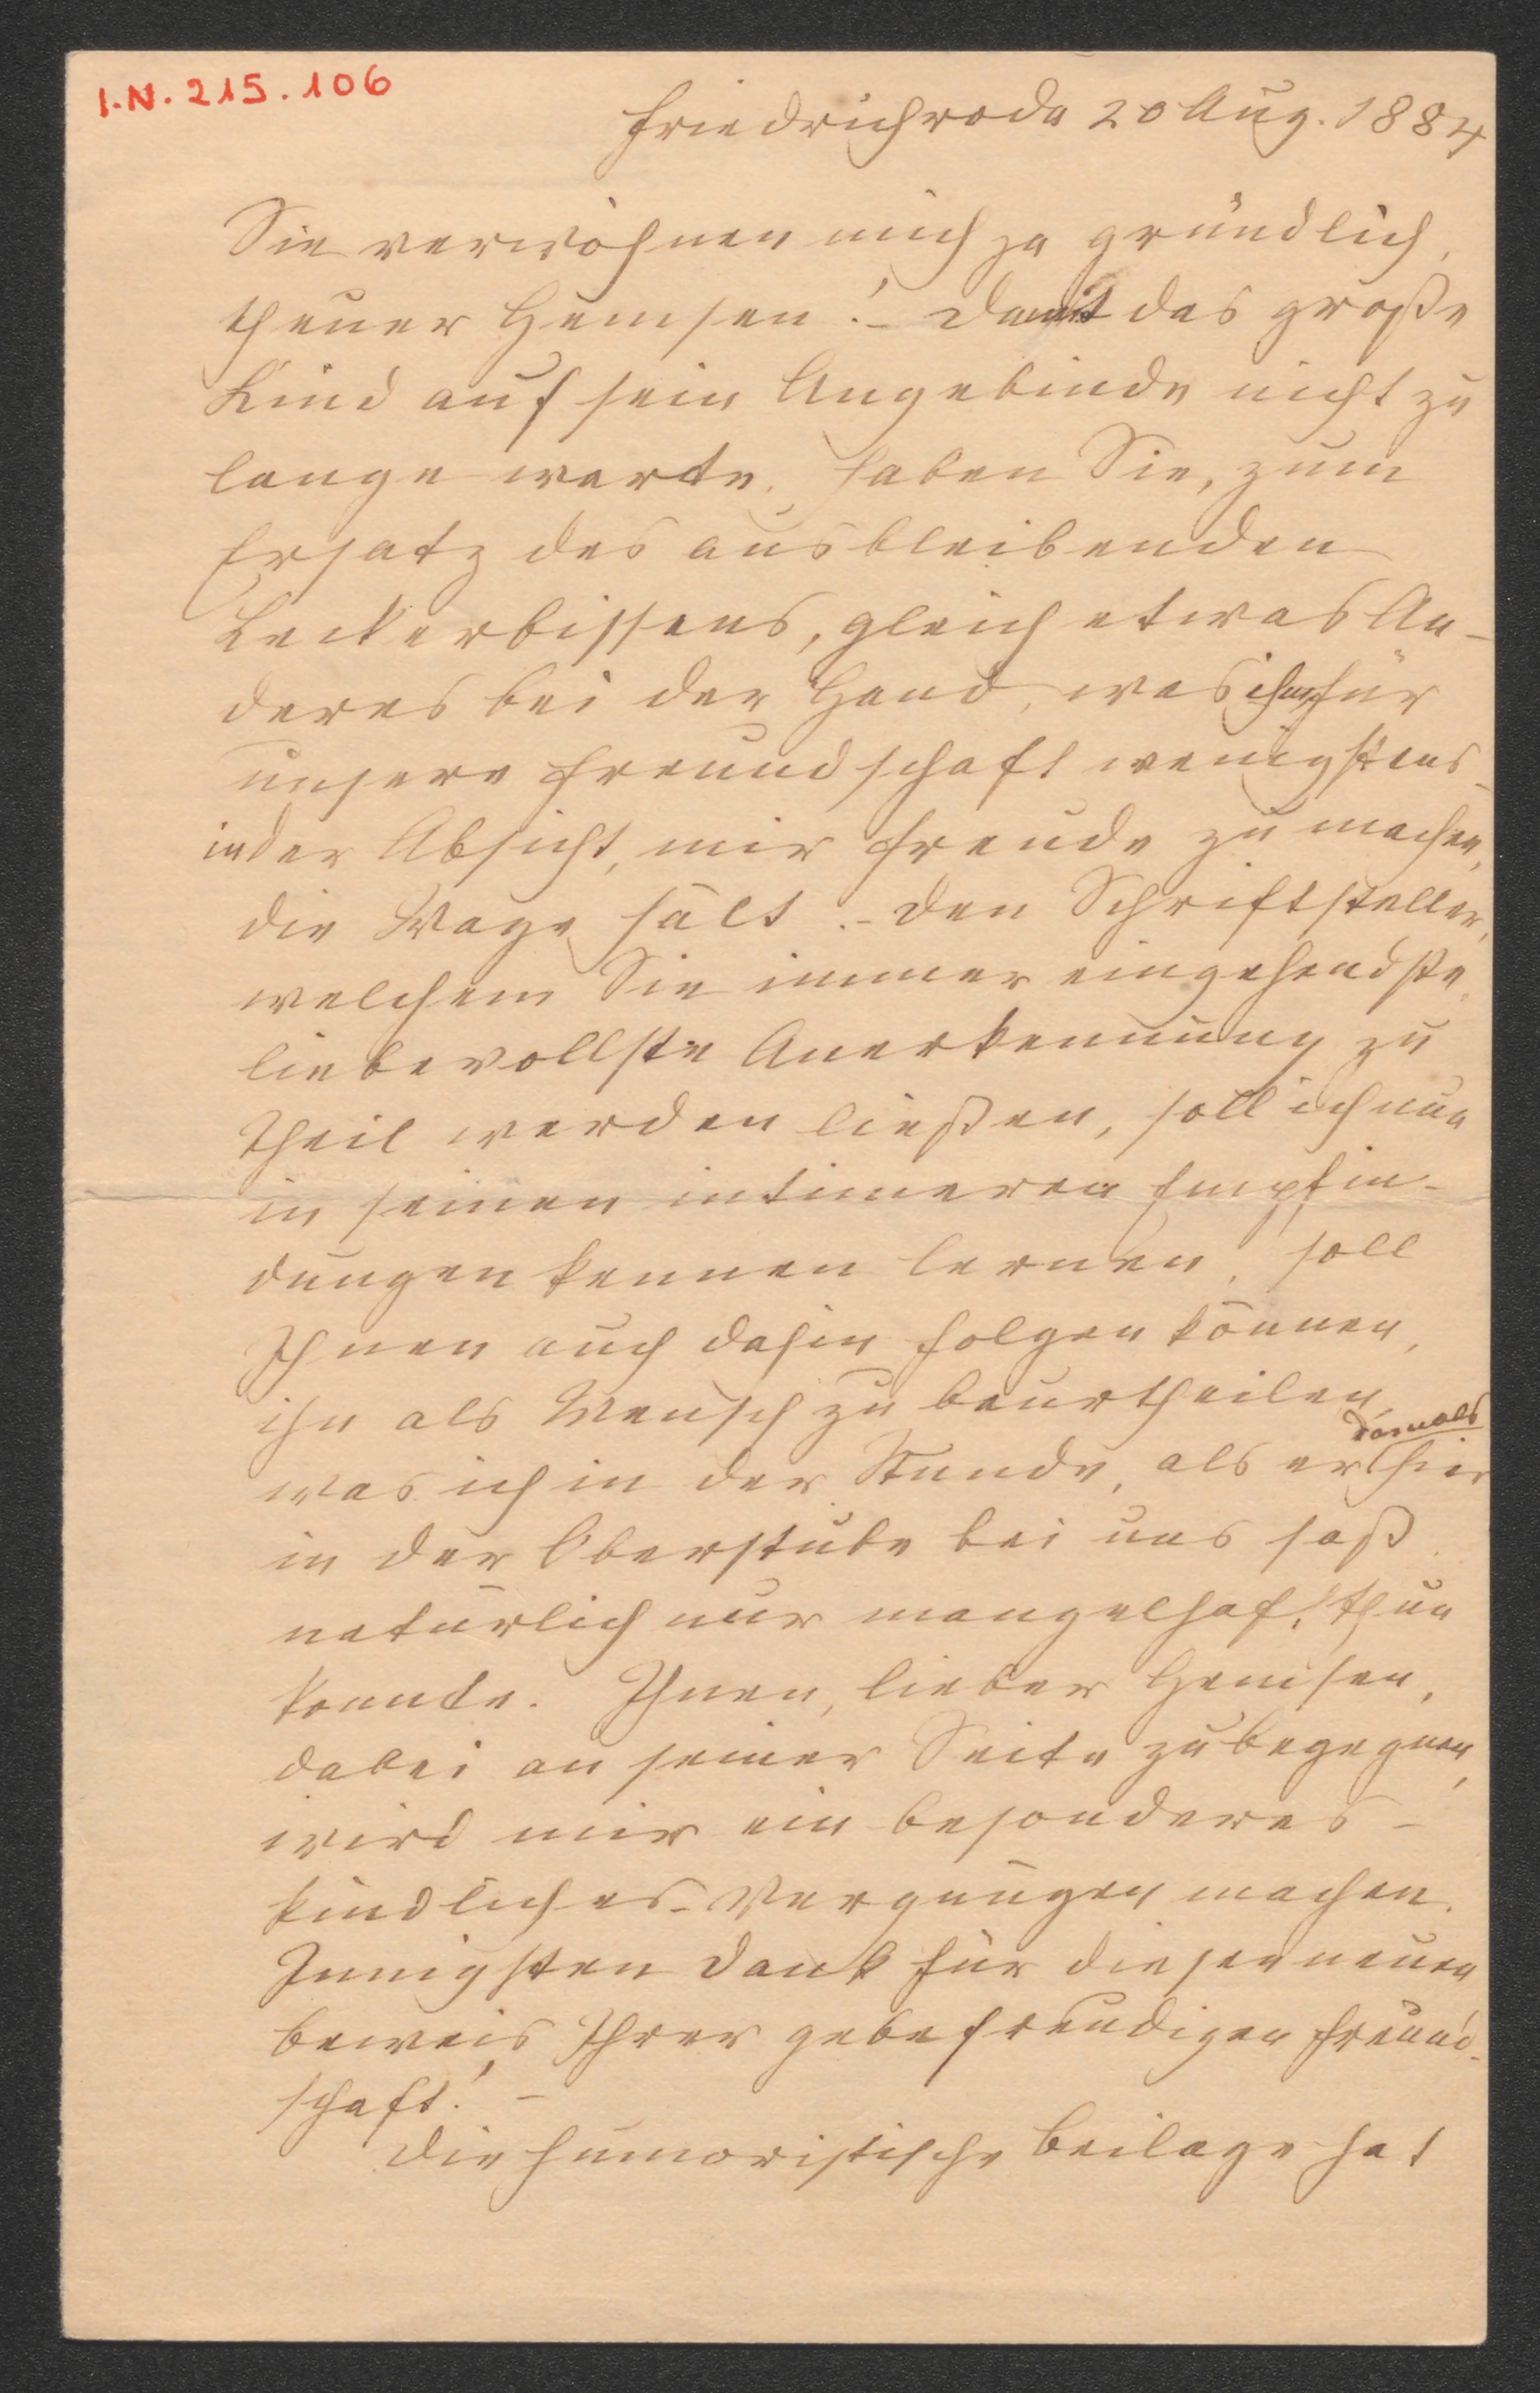 I.N. 215.106
Friedrichroda 20 Aug. 1884
Sie verwöhnen mich ja gründlich,
theurer Hemsen! – Damit das große
Kind auf sein Angebinde nicht zu
lange warte, haben Sie, zum
Ersatz des ausbleibenden
Leckerbissens, gleich etwas An-
deres bei der Hand, was ihm für
unsere Freundschaft wenigstens
in der Absicht, mir Freude zu machen,
die Wage hält. – Den Schriftsteller,
welchem Sie immer eingehendste,
liebevollste Anerkennung zu
Theil werden ließen, soll ich nun
in seinen intimeren Empfin-
dungen kennen lernen, soll
Ihnen auch dahin folgen können,
ihn als Mensch zu beurtheilen,
was ich in der Stunde, als er damals hier
in der Oberstube bei uns saß,
natürlich nur mangelhaft thun
konnte. Ihnen, lieber Hemsen,
dabei an seiner Seite zu begegnen,
wird mir ein besonderes –
kindliches – Vergnügen machen.
Innigsten Dank für diesen neuen
Beweis Ihrer gebefreudigen Freund-
schaft! –
Die humoristische Beilage hat